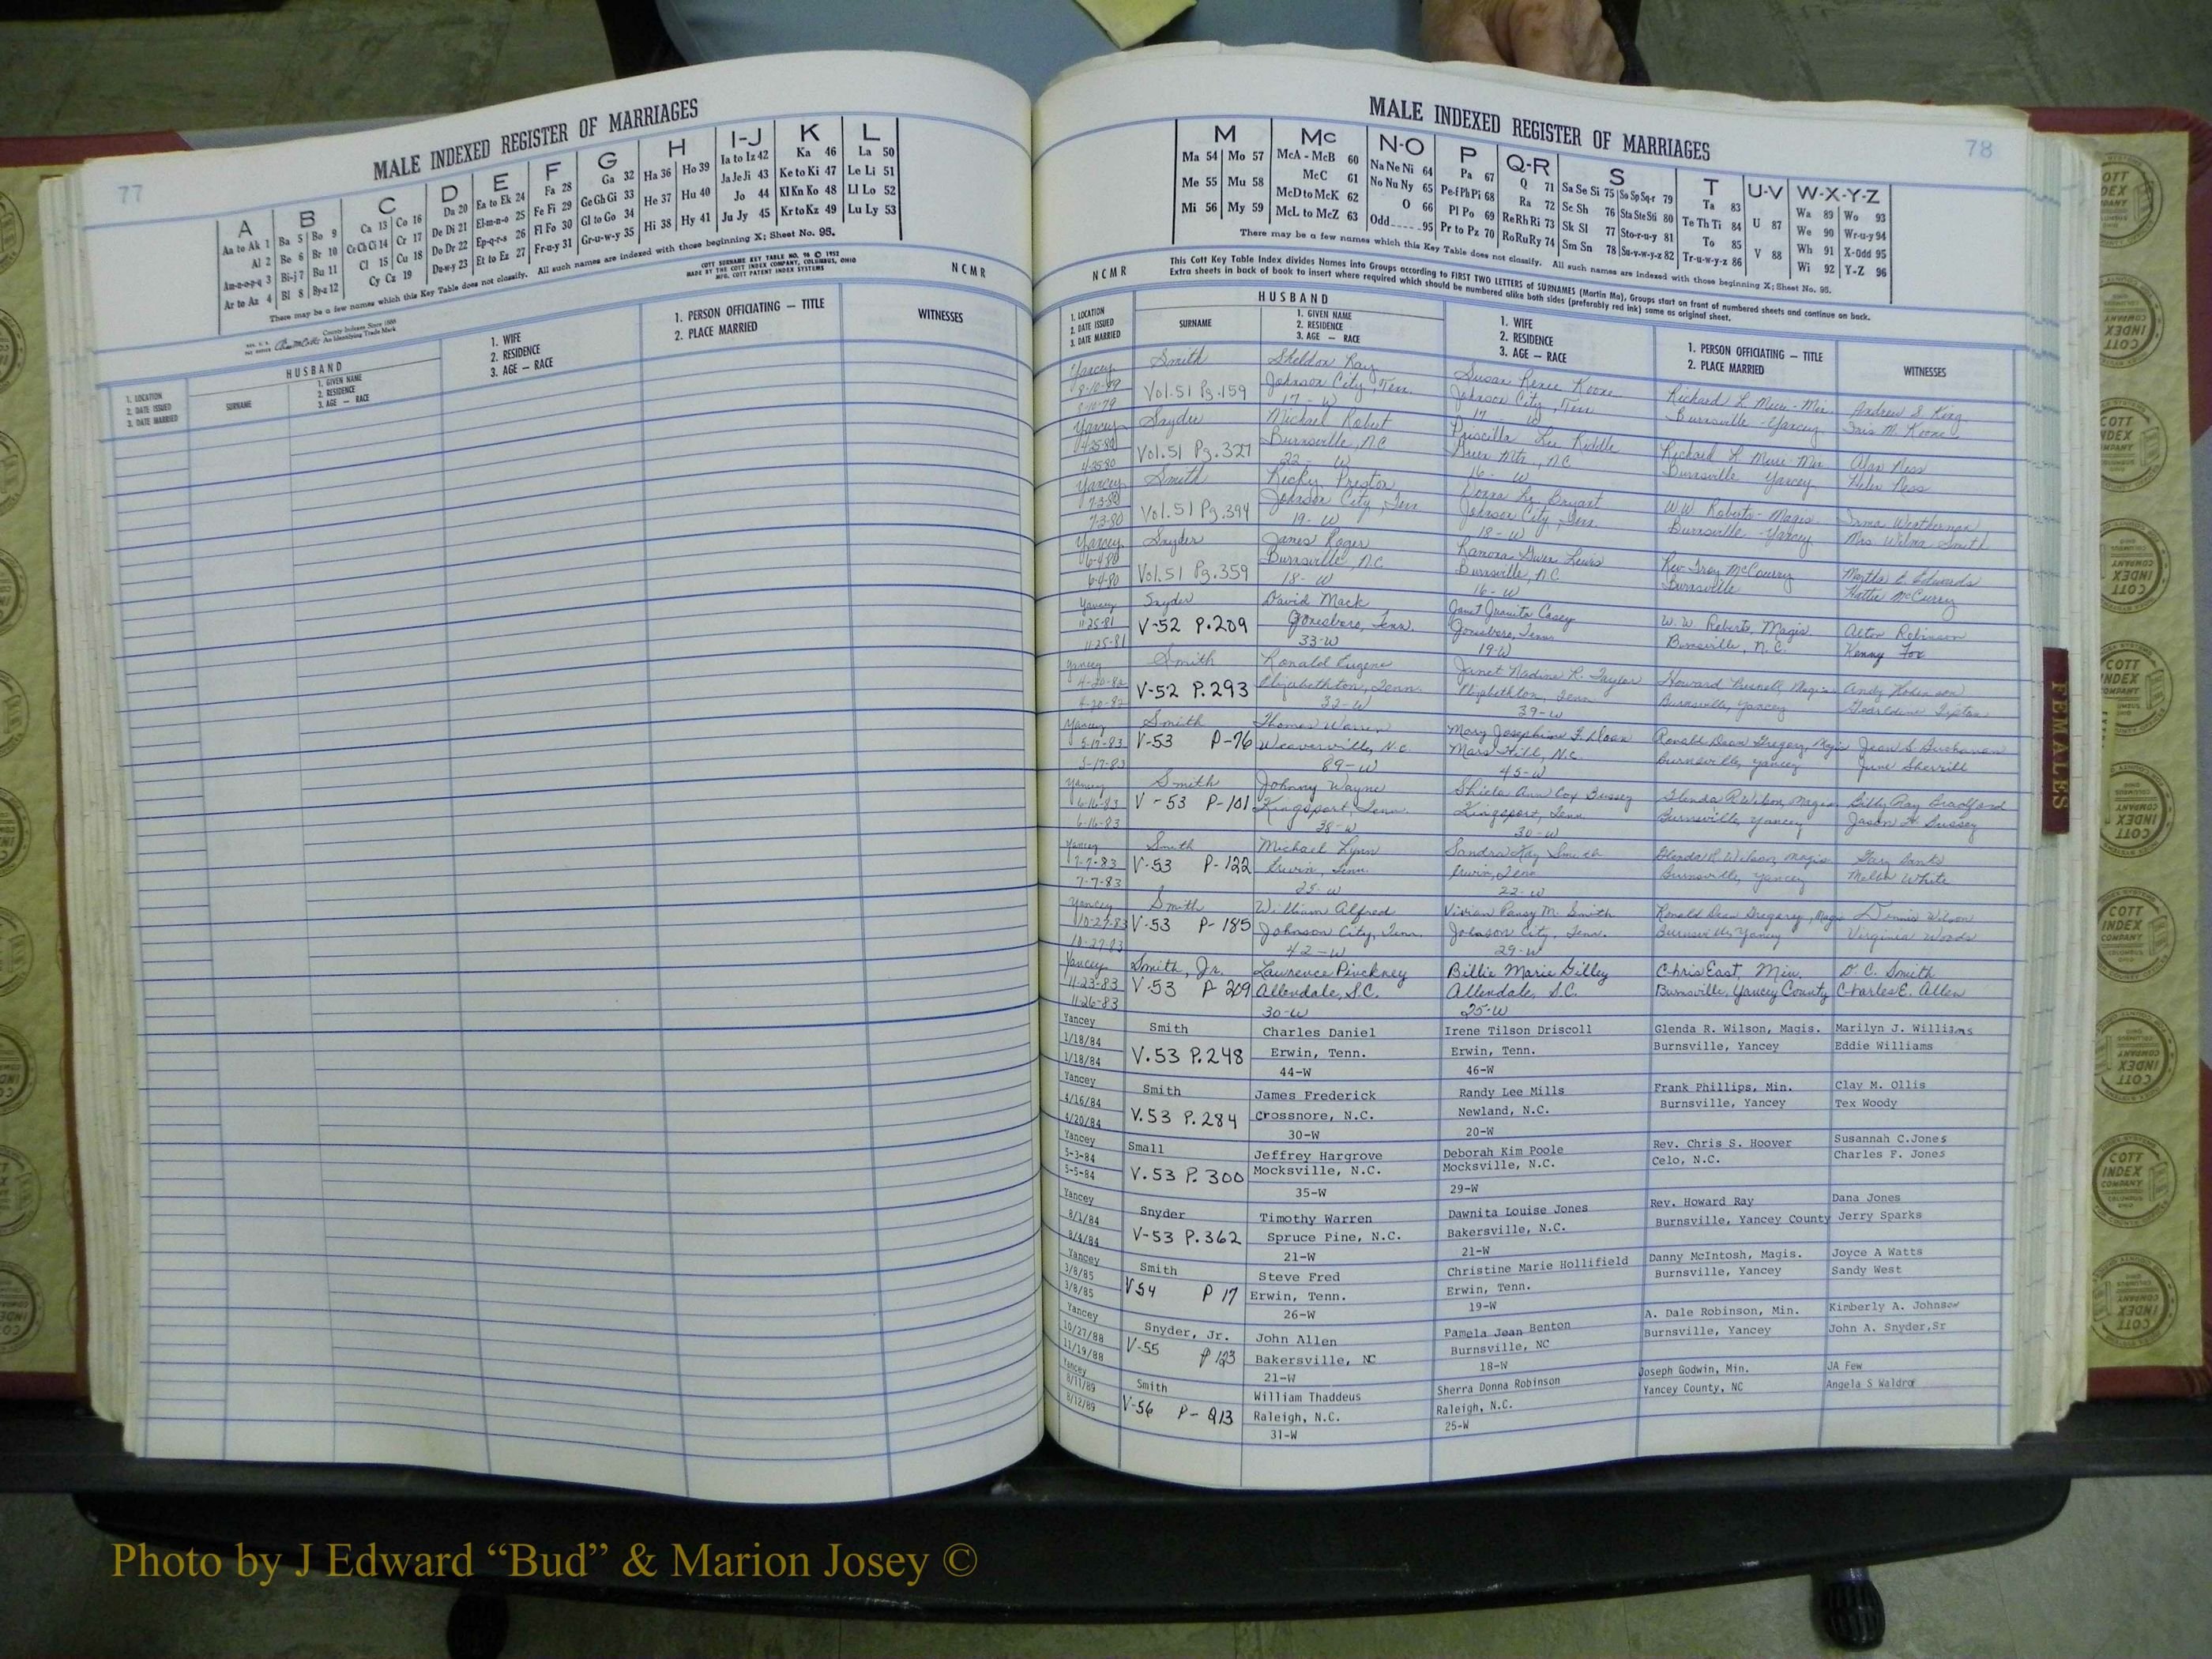 77
MALE INDEXED REGISTER OF MARRIAGES
A B C D E F G H I-J K L
Aa to Ak 1 Ba 5 Bo 9 Ca 13 Co 16 Da 20 Ea to Ek 24 Fa 28 Ga 32 Ha 36 Ho 39 Ia to Iz 42 Ka 46 La 50
Al 2 Be 6 Br 10 Ce Ch Ci 14 Cr 17 De Di 21 El-m-n-o 25 Fe Fi 29 Ge Gh Gi 33 He 37 Hu 40 Ja Je Ji 43 Ke to Ki 47 Le Li 51
Am-n-o-p-q 3 Bi-j 7 Bu 11 Cl 15 Cu 18 Do Dr 22 Ep-q-r-s 26 Fl Fo 30 Gl to Go 34 Hi 38 Hy 41 Jo 44 Kl Kn Ko 48 Ll Lo 52
Ar to Az 4 Bl 8 By-z 12 Cy Cz 19 Du-w-y 23 Et to Ez 27 Fr-u-y 31 Gr-u-w-y 35 Ju Jy 45 Kr to Kz 49 Lu Ly 53
There may be a few names which this Key Table does not classify. All such names are indexed with those beginning X; Sheet No. 95.
COTT SURNAME KEY TABLE NO. 96 © 1952
MADE BY THE COTT INDEX COMPANY, COLUMBUS, OHIO
MFG. COTT PATENT INDEX SYSTEMS
County Indexes Since 1888
An Identifying Trade Mark
NCMR
1. LOCATION
2. DATE ISSUED
3. DATE MARRIED
HUSBAND
SURNAME
1. GIVEN NAME
2. RESIDENCE
3. AGE — RACE
1. WIFE
2. RESIDENCE
3. AGE — RACE
1. PERSON OFFICIATING — TITLE
2. PLACE MARRIED
WITNESSES
78
MALE INDEXED REGISTER OF MARRIAGES
M Mc N-O P Q-R S T U-V W-X-Y-Z
Ma 54 Mo 57 McA - McB 60 Na Ne Ni 64 Pa 67 Q 71 Sa Se Si 75 So Sp Sq-r 79 Ta 83 U 87 Wa 89 Wo 93
Me 55 Mu 58 McC 61 No Nu Ny 65 Pe-f Ph Pi 68 Ra 72 Sc Sh 76 Sta Ste Sti 80 Te Th Ti 84 V 88 We 90 Wr-u-y 94
Mi 56 My 59 McD to McK 62 O 66 Pl Po 69 Re Rh Ri 73 Sk Sl 77 Sto-r-u-y 81 To 85 Wh 91 X-Odd 95
McL to McZ 63 Odd 95 Pr to Pz 70 Ro Ru Ry 74 Sm Sn 78 Su-v-w-y-z 82 Tr-u-w-y-z 86 Wi 92 Y-Z 96
There may be a few names which this Key Table does not classify. All such names are indexed with those beginning X; Sheet No. 95.
NCMR
This Cott Key Table Index divides Names into Groups according to FIRST TWO LETTERS of SURNAMES (Martin Ma), Groups start on front of numbered sheets and continue on back.
Extra sheets in back of book to insert where required which should be numbered alike both sides (preferably red ink) same as original sheet.
1. LOCATION
2. DATE ISSUED
3. DATE MARRIED
HUSBAND
SURNAME
1. GIVEN NAME
2. RESIDENCE
3. AGE — RACE
1. WIFE
2. RESIDENCE
3. AGE — RACE
1. PERSON OFFICIATING — TITLE
2. PLACE MARRIED
WITNESSES
Yancey Smith Sheldon Ray Susan Renee Koone Richard L. Andrew S. King
8-10-79 Vol.51 Pg.159 Johnson City, Tenn Johnson City, Tenn Burnsville - Yancey Iris M. Koone
8-10-79 17 - W 17 - W
Yancey Snyder Michael Robert Priscilla Lee Riddle Richard L. Alan Ness
4-25-80 Vol.51 Pg.327 Burnsville, N.C. Mtn., N.C. Burnsville Yancey Helen Ness
4-25-80 22 - W 16 - W
Yancey Smith Ricky Preston Donna Bryant W.W. Roberts - Magis. Irma Weatherman
7-3-80 Vol.51 Pg.394 Johnson City, Tenn Johnson City, Tenn. Burnsville - Yancey Mrs. Wilma Smith
7-3-80 19 - W 18 - W
Yancey Snyder James Roger Ramona Gwen Lewis Rev. Troy McCourry Martha E. Edwards
6-4-80 Vol.51 Pg.359 Burnsville, N.C. Burnsville, N.C. Burnsville Hattie McCurry
6-4-80 18 - W 16 - W
Yancey Snyder David Mack Janet Juanita Casey W. W. Roberts, Magis. Alton Robinson
11-25-81 V-52 P.209 Jonesboro, Tenn. Jonesboro, Tenn. Burnsville, N.C. Kenny Fox
11-25-81 33-W 19-W
Yancey Smith Ronald Eugene Janet Nadine R. Taylor Howard Presnell, Magis Andy Robinson
4-20-82 V-52 P.293 Elizabethton, Tenn. Elizabethton, Tenn Burnsville, Yancey Geraldine Tipton
4-20-82 32-W 39-W
Yancey Smith Thomas Warren Mary Josephine F. Sloan Ronald Dean Gregory, Magis Jean S. Buchanan
5-17-83 V-53 P-76 Weaverville, N.C. Mars Hill, N.C. Burnsville, Yancey June Sherrill
5-17-83 89-W 45-W
Yancey Smith Johnny Wayne Shiela Ann Cox Bussey Glenda R. Wilson, Magis Billy Ray Bradford
6-16-83 V-53 P-101 Kingsport, Tenn. Kingsport, Tenn Burnsville, Yancey Jason H. Bussey
6-16-83 38-W 30-W
Yancey Smith Michael Lynn Sandra Kay Smith Glenda R. Wilson, Magis Gary Banks
7-7-83 V-53 P-122 Erwin, Tenn. Erwin, Tenn Burnsville, Yancey Melba White
7-7-83 25-W 22-W
Yancey Smith William Alfred Vivian Pansy M. Smith Ronald Dean Gregory, Magis Dennis Wilson
10-27-83 V-53 P-185 Johnson City, Tenn. Johnson City, Tenn. Burnsville, Yancey Virginia Woods
10-27-83 42-W 29-W
Yancey Smith, Jr. Lawrence Pinckney Billie Marie Gilley Chris East, Min. D. C. Smith
11-23-83 V-53 P 209 Allendale, S.C. Allendale, S.C. Burnsville, Yancey County Charles E. Allen
11-26-83 30-W 25-W
Yancey Smith Charles Daniel Irene Tilson Driscoll Glenda R. Wilson, Magis. Marilyn J. Williams
1/18/84 V.53 P.248 Erwin, Tenn. Erwin, Tenn. Burnsville, Yancey Eddie Williams
1/18/84 44-W 46-W
Yancey Smith James Frederick Randy Lee Mills Frank Phillips, Min. Clay M. Ollis
4/16/84 V.53 P.284 Crossnore, N.C. Newland, N.C. Burnsville, Yancey Tex Woody
4/20/84 30-W 20-W
Yancey Small Jeffrey Hargrove Deborah Kim Poole Rev. Chris S. Hoover Susannah C.Jones
5-3-84 V.53 P.300 Mocksville, N.C. Mocksville, N.C. Celo, N.C. Charles F. Jones
5-5-84 35-W 29-W
Yancey Snyder Timothy Warren Dawnita Louise Jones Rev. Howard Ray Dana Jones
8/1/84 V-53 P.362 Spruce Pine, N.C. Bakersville, N.C. Burnsville, Yancey County Jerry Sparks
8/4/84 21-W 21-W
Yancey Smith Steve Fred Christine Marie Hollifield Danny McIntosh, Magis. Joyce A Watts
3/8/85 V54 P 17 Erwin, Tenn. Erwin, Tenn. Burnsville, Yancey Sandy West
3/8/85 26-W 19-W
Yancey Snyder, Jr. John Allen Pamela Jean Benton A. Dale Robinson, Min. Kimberly A. Johnson
10/27/88 V-55 P 123 Bakersville, NC Burnsville, NC Burnsville, Yancey John A. Snyder,Sr
11/19/88 21-W 18-W
Yancey Smith William Thaddeus Sherra Donna Robinson Joseph Godwin, Min. JA Few
8/11/89 V-56 P- 213 Raleigh, N.C. Raleigh, N.C. Yancey County, NC Angela S Waldrof
8/12/89 31-W 25-W
FEMALES
COTT INDEX COMPANY COLUMBUS OHIO
Photo by J Edward “Bud” & Marion Josey ©